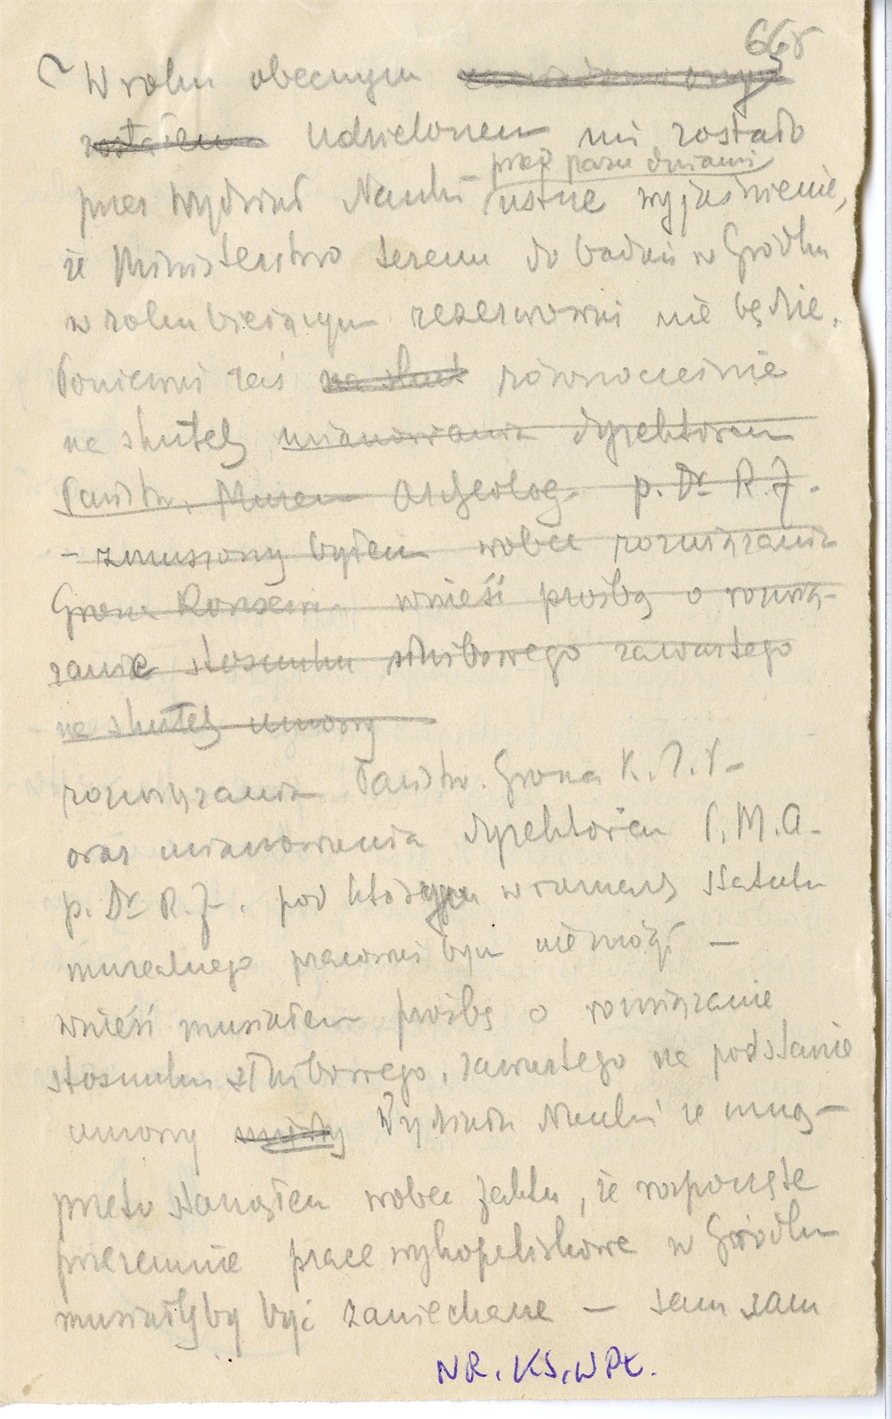 66r
W roku obecnym
zostałem udzielonem mi zostało
przez paru dniami
przez Wydział Nauki ustne wyjaśnienie,
że Ministerstwo terenu do badań w Gródku
w roku bieżącym rezerwować nie będzie.
Ponieważ zaś na skut równocześnie
na skutek mianowania dyrektorem
Państw. Muzeum Archeolog. p. Dr R. J.
– zmuszony byłem wobec rozwiązania
Grona Konserw. wnieść prośbę o rozwią-
zanie stosunku służbowego zawartego
na skutek umowy
rozwiązania Państw. Grona K. Z. P.
oraz mianowania dyrektorem P. M. A.
p. Dr R. J. pod którym w ramach statutu
muzealnego pracować bym nie mógł –
wnieść musiałem prośbę o rozwiązanie
stosunku służbowego, zawartego na podstawie
umowy Wydziału Nauki ze mną –
przeto stanąłem wobec faktu, że rozpoczęte
przezemnie prace wykopaliskowe w Gródku
musiałyby być zaniechane – tem sam
NR. KS. WPŁ.